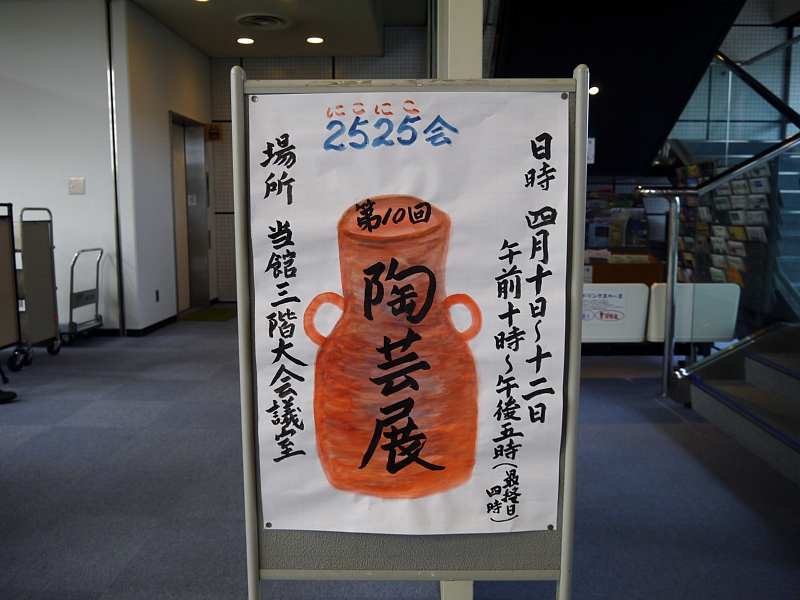 にこにこ
2525会
日時 四月十日~十二日
午前十時~午後五時(最終日四時)
第10回
陶芸展
場所 当館三階大会議室